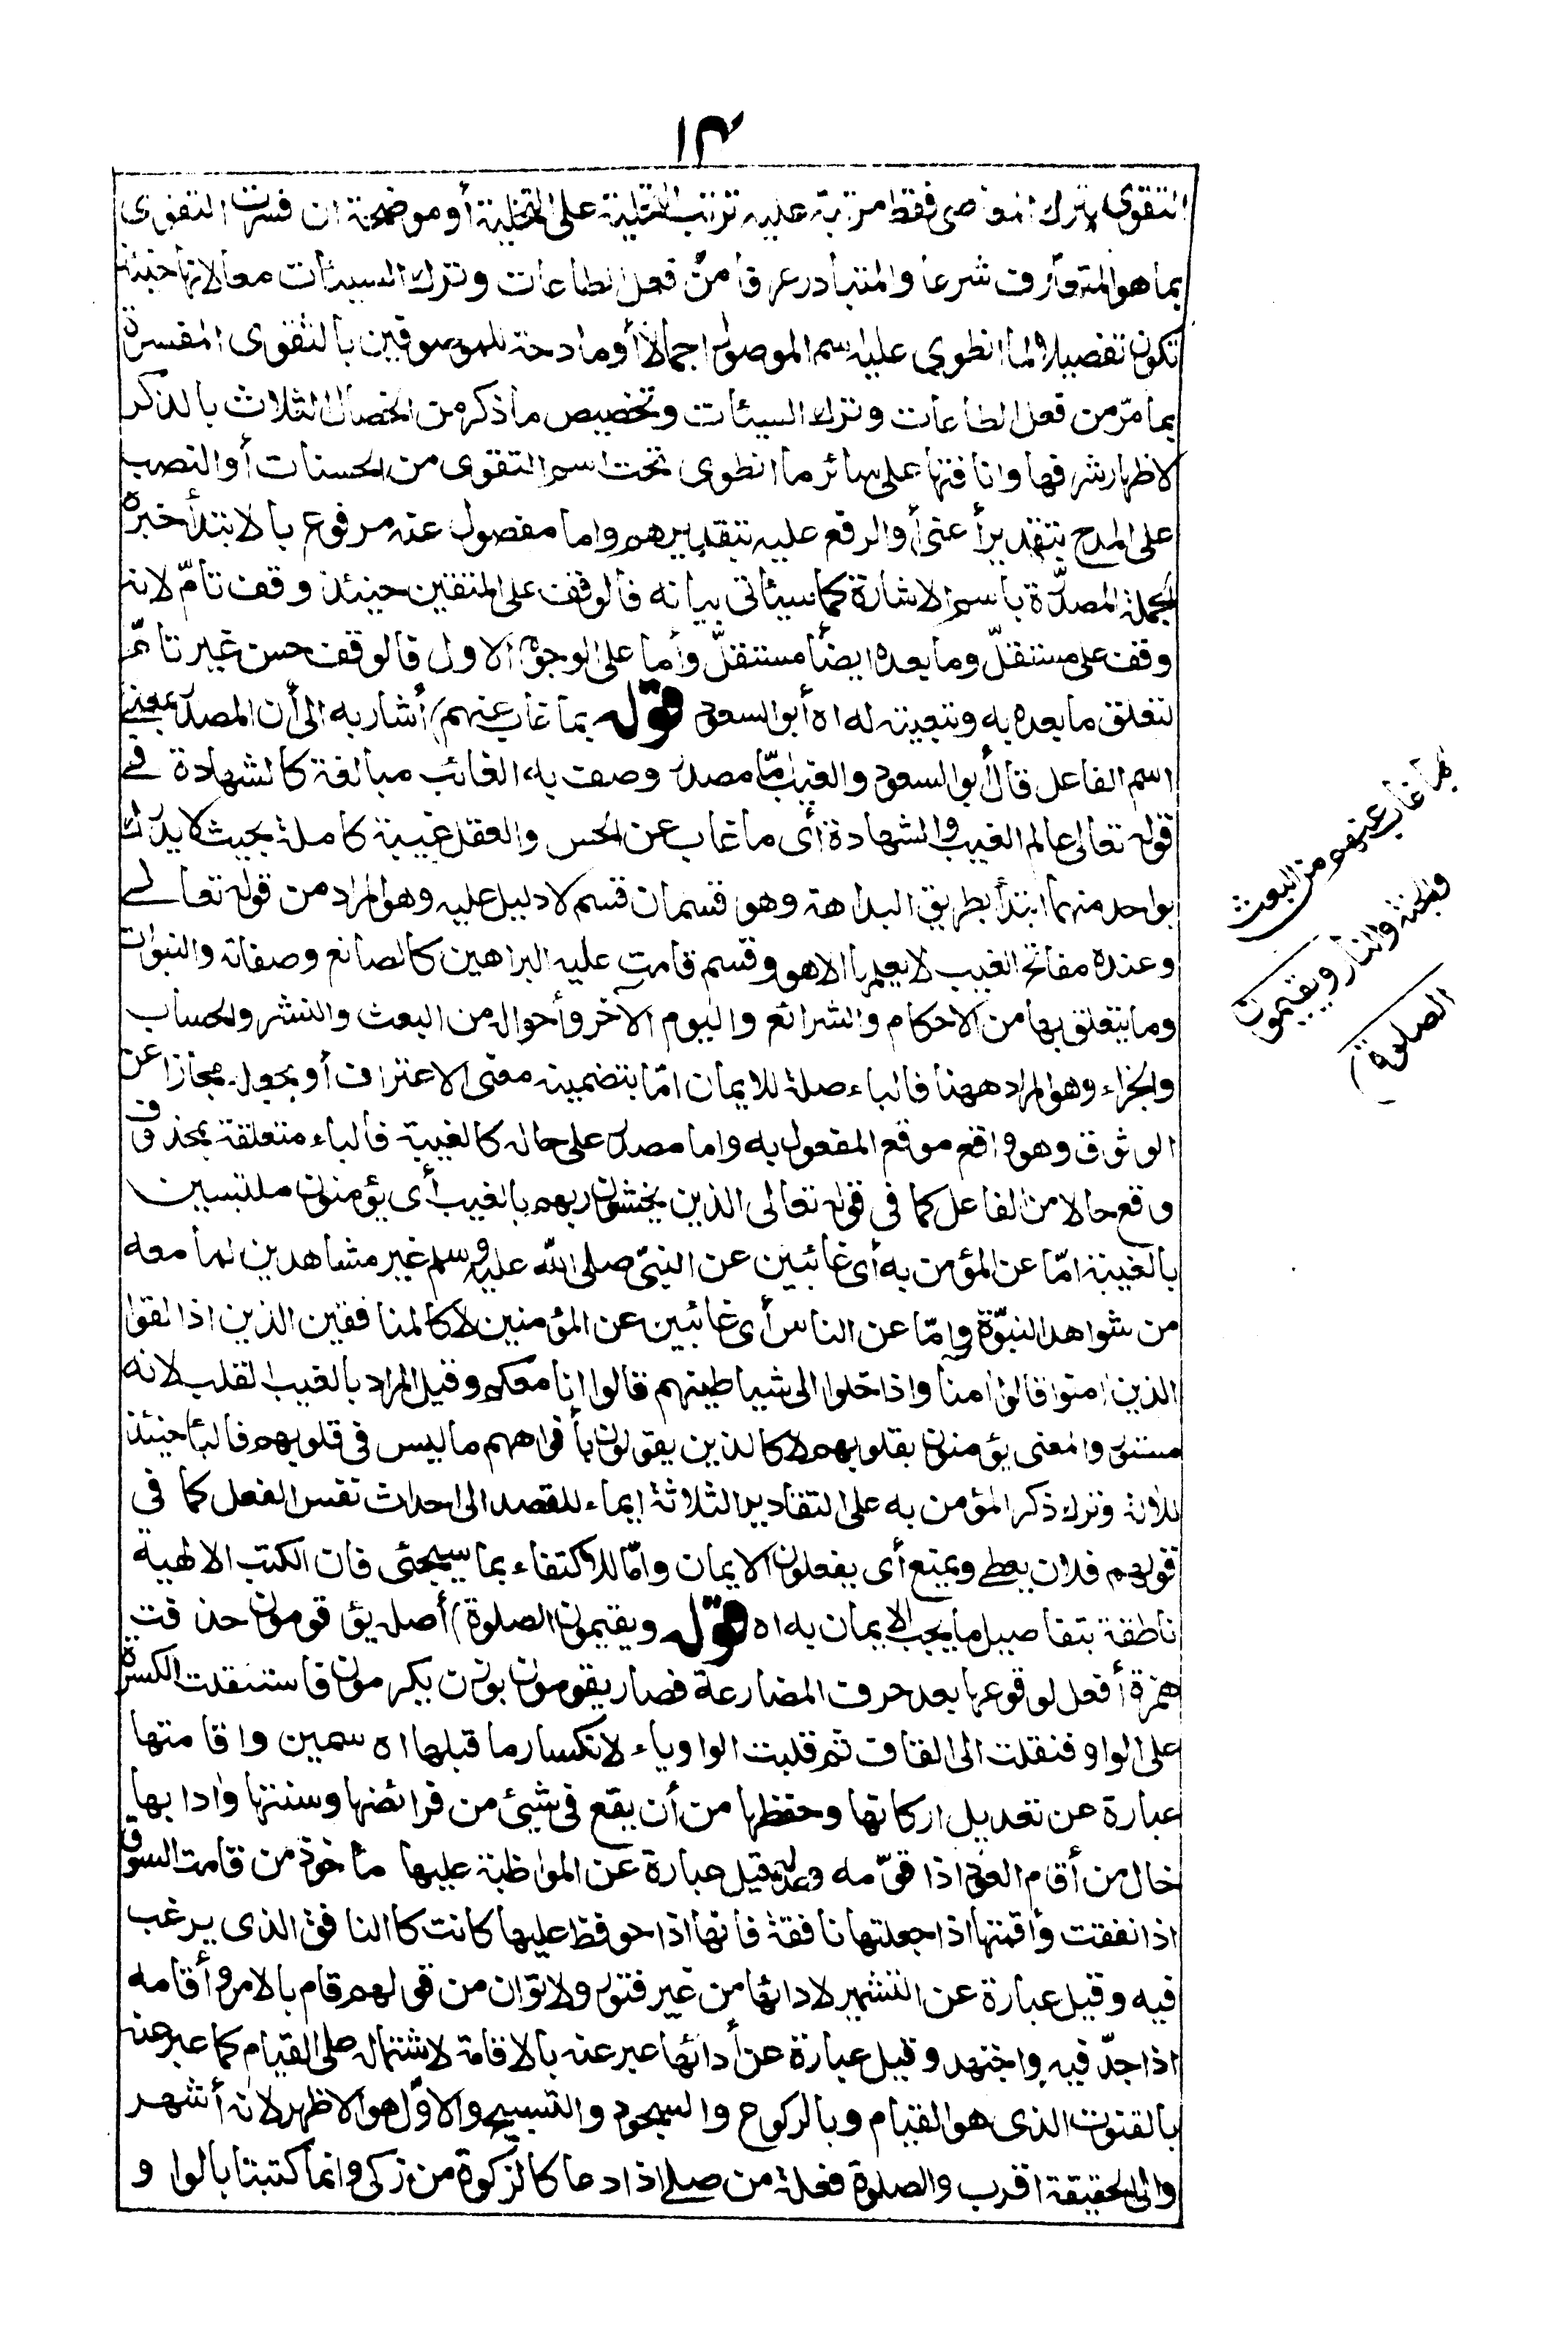 ١٣
التقوى بترك المعاصى فقط مرتبة عليه ترتب التحلية على التخلية أو موضحة ان فسرت التقوى
بما هو المتعارف شرعا والمتبادر عرفا من فعل الطاعات وترك السيئات معا لانها حينئذ
تكون تفصيلا لما انطوى عليه اسم الموصول اجمالا أو مادحة للموصوفين بالتقوى المفسرة
بما مرّ من فعل الطاعات وترك السيئات وتخصيص ما ذكر من الخصال الثلاث بالذكر
لاظهار شرفها وانافتها على سائر ما انطوى تحت اسم التقوى من الحسنات أو النصب
على المدح بتقدير أعنى أو الرفع عليه بتقديرهم واما مفصول عنه مرفوع بالابتدأ خبره
الجملة المصدّرة باسم الاشارة كما سيأتى بيانه فالوقف على المتقين حينئذ وقف تامّ لانه
وقف على مستقلّ وما بعده ايضًا مستقلّ وأما على الوجوه الاول فالوقف حسن غير تامّ
لتعلق ما بعده به وتبعيته له اه أبو السعود قوله بما غاب عنهم) أشار به الى أن المصدر بمعنى
اسم الفاعل قال أبو السعود والغيب امّا مصدر وصف به الغائب مبالغة كالشهادة فى
قوله تعالى عالم الغيب والشهادة أى ما غاب عن الحس والعقل غيبة كاملة بحيث لا يدرك
بواحد منهما ابتدأ بطريق البداهة وهو قسمان قسم لا دليل عليه وهو المراد من قوله تعالى
وعنده مفاتح الغيب لا يعلمها الا هو وقسم قامت عليه البراهين كالصانع وصفاته والنبوات
وما يتعلق بها من الاحكام والشرائع واليوم الآخر وأحواله من البعث والنشر والحساب
والجزاء وهو المراد ههنا فالباء صلة للايمان امّا بتضمينه معنى الاعتراف أو بجعله مجازا عن
الوثوق وهو واقع موقع المفعول به واما مصدر على حاله كالغيبة فالباء متعلقة بمحذوف
وقع حالا من الفاعل كما فى قوله تعالى الذين يخشون ربهم بالغيب أى يؤمنون ملتبسين
بالغيبة امّا عن المؤمن به أى غائبين عن النبىّ صلى الله عليه وسلم غير مشاهدين لما معه
من شواهد النبوّة وامّا عن الناس أى غائبين عن المؤمنين لا كالمنافقين الذين اذا لقوا
الذين امنوا قالوا امنا واذا خلوا الى شياطينهم قالوا انا معكم وقيل المراد بالغيب القلب لانه
مستور والمعنى يؤمنون بقلوبهم لا كالذين يقولون بأفواههم ما ليس فى قلوبهم فالباء حينئذ
للالة وترك ذكر المؤمن به على التقادير الثلاثة ايماء للقصد الى احداث نفس الفعل كما فى
قولهم فلان يعطى ويمنع أى يفعلون الايمان وامّا للاكتفاء بما سيجئى فان الكتب الالهية
ناطقة بتفاصيل ما يجب الايمان به اه قوله ويقيمون الصلوة) أصله يؤقومون حذفت
همزة أفعل لوقوعها بعد حرف المضارعة فصار يقومون بوزن يكرمون فاستثقلت الكسرة
على الواو فنقلت الى القاف ثم قلبت الواو ياء لانكسار ما قبلها اه سمين واقامتها
عبارة عن تعديل اركانها وحفظها من أن يقع فى شيئ من فرائضها وسننها وادابها
خال من أقام العود اذا قوّمه وعدله وقيل عبارة عن المواظبة عليها مأخوذ من قامت السوق
اذا نفقت وأقمتها اذا جعلتها نافقة فانها اذا حوفظ عليها كانت كالنافق الذى يرغب
فيه وقيل عبارة عن التشمير لادائها من غير فتور ولا توان من قولهم قام بالامر وأقامه
اذا جدّ فيه واجتهد وقيل عبارة عن أدائها عبر عنه بالاقامة لاشتماله على القيام كما عبر عنه
بالقنوت الذى هو القيام وبالركوع والسجود والتسبيح والاوّل هو الاظهر لانه أشهر
والى الحقيقة اقرب والصلوة فعلة من صلى اذا دعا كالزكوة من زكى وانما كتبتا بالواو و
بما غاب عنهم من البعث
والجنة والنار ويقيمون
الصلوة)